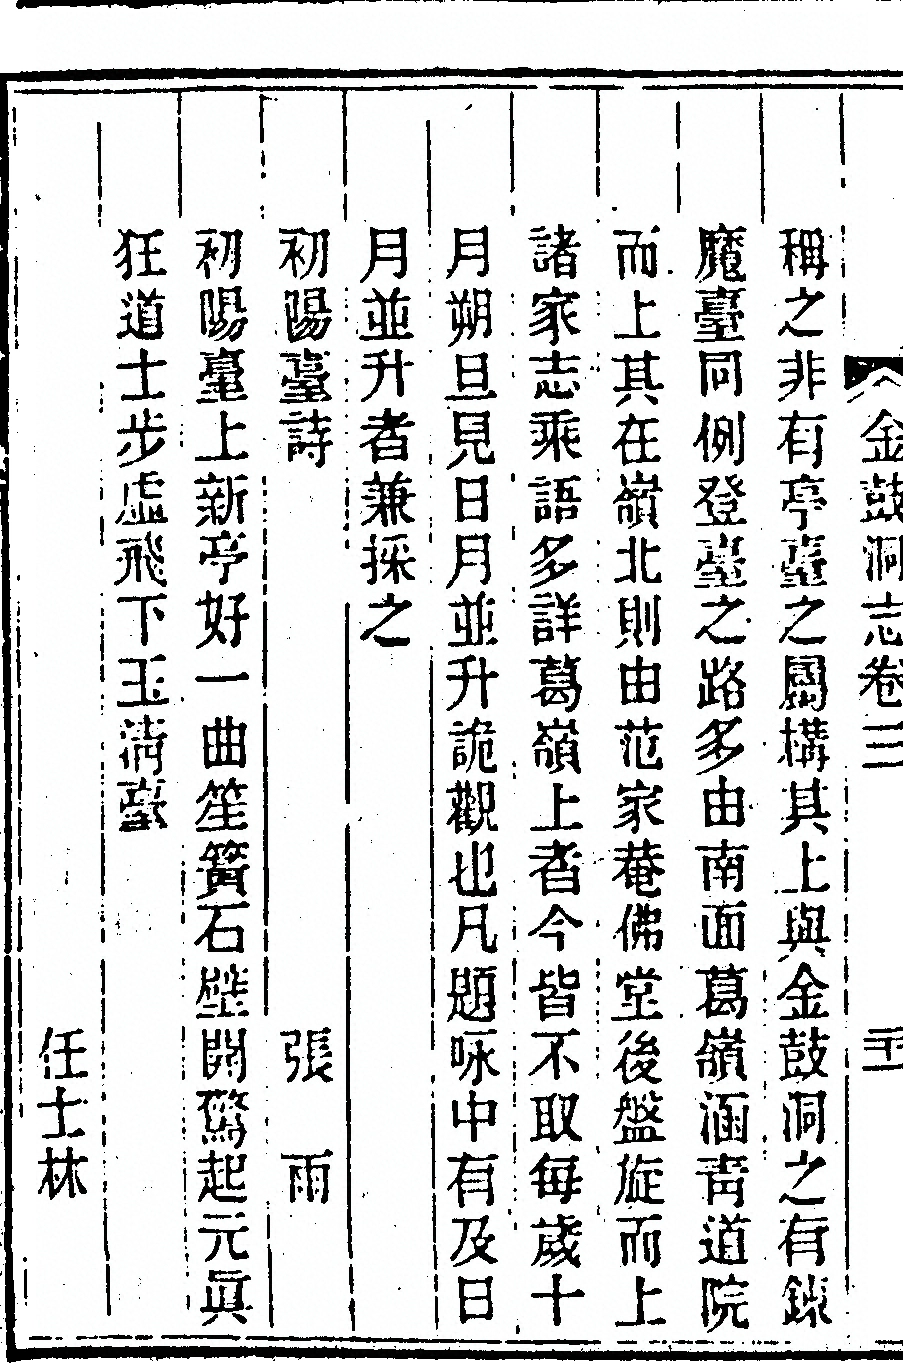 金鼓洞志卷三
稱之非有亭臺之屬構其上與金鼓洞之有鍊
魔臺同例登臺之路多由南面葛嶺涵靑道院
而上其在嶺北則由范家菴佛堂後盤旋而上
諸家志乘語多詳葛嶺上者今皆不取每歲十
月朔旦見日月並升詭觀也凡題咏中有及日
月並升者兼採之
初陽臺詩　張　雨
初陽臺上新亭好一曲笙簧石壁開驚起元眞
狂道士步虛飛下玉淸臺
任士林